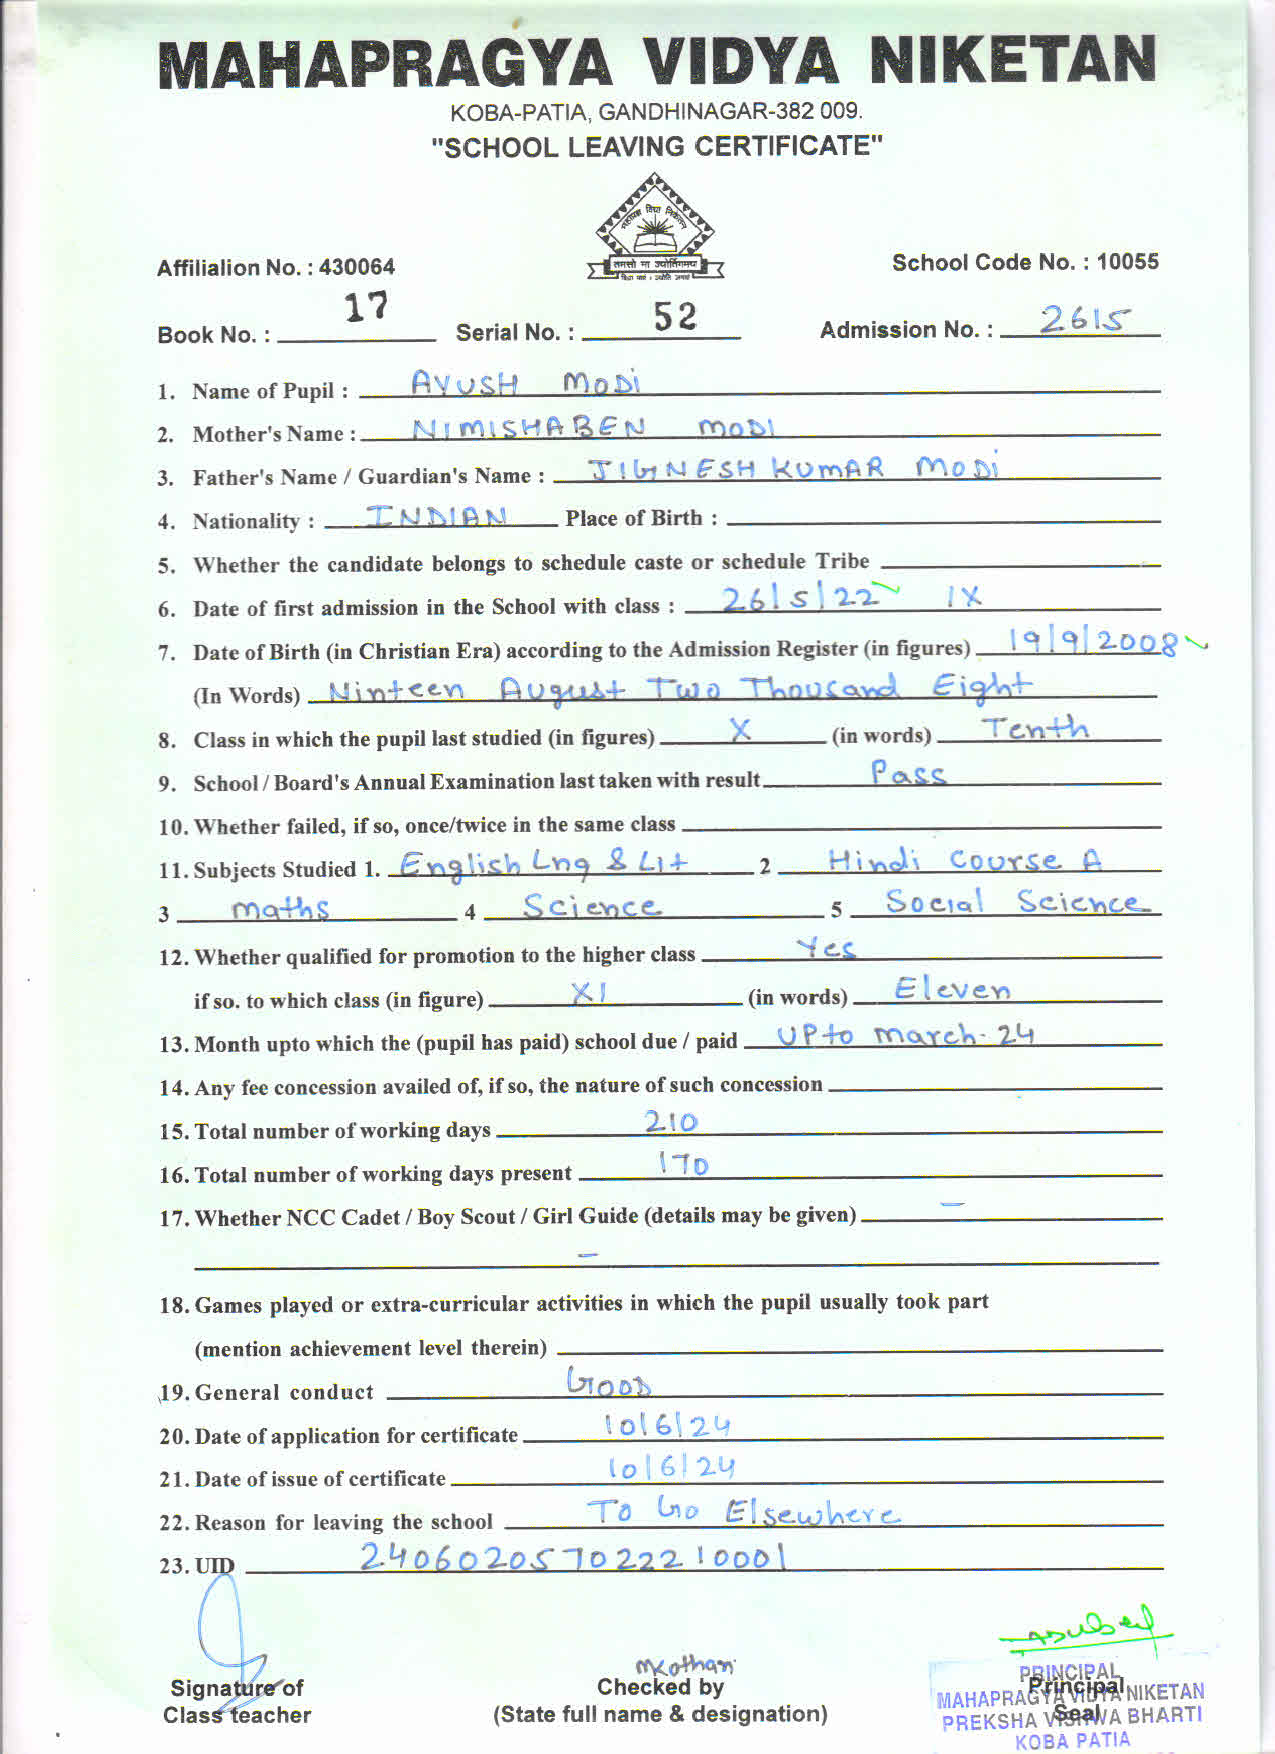 MAHAPRAGYA VIDYA NIKETAN
KOBA-PATIA, GANDHINAGAR-382 009.
"SCHOOL LEAVING CERTIFICATE"
महाप्रज्ञ विद्या निकेतन
तमसो मा ज्योतिर्गमय
Affilialion No. : 430064 School Code No. : 10055
Book No. : 17 Serial No. : 52 Admission No. : 2615
1. Name of Pupil : AYUSH MODI
2. Mother's Name : NIMISHABEN MODI
3. Father's Name / Guardian's Name : JIGNESHKUMAR MODI
4. Nationality : INDIAN Place of Birth :
5. Whether the candidate belongs to schedule caste or schedule Tribe
6. Date of first admission in the School with class : 26/5/22 IX
7. Date of Birth (in Christian Era) according to the Admission Register (in figures) 19/9/2008
(In Words) Ninteen August Two Thousand Eight
8. Class in which the pupil last studied (in figures) X (in words) Tenth
9. School / Board's Annual Examination last taken with result Pass
10. Whether failed, if so, once/twice in the same class
11. Subjects Studied 1. English Lng & Lit 2 Hindi Course A
3 maths 4 Science 5 Social Science
12. Whether qualified for promotion to the higher class Yes
if so. to which class (in figure) XI (in words) Eleven
13. Month upto which the (pupil has paid) school due / paid UPto march-24
14. Any fee concession availed of, if so, the nature of such concession
15. Total number of working days 210
16. Total number of working days present 170
17. Whether NCC Cadet / Boy Scout / Girl Guide (details may be given) -
-
18. Games played or extra-curricular activities in which the pupil usually took part
(mention achievement level therein)
19. General conduct GOOD
20. Date of application for certificate 10/6/24
21. Date of issue of certificate 10/6/24
22. Reason for leaving the school To Go Elsewhere
23. UID 240602057022210001
Signature of Class teacher
Checked by
(State full name & designation)
Principal
Seal
PRINCIPAL
MAHAPRAGYA VIDYA NIKETAN
PREKSHA VISHWA BHARTI
KOBA PATIA